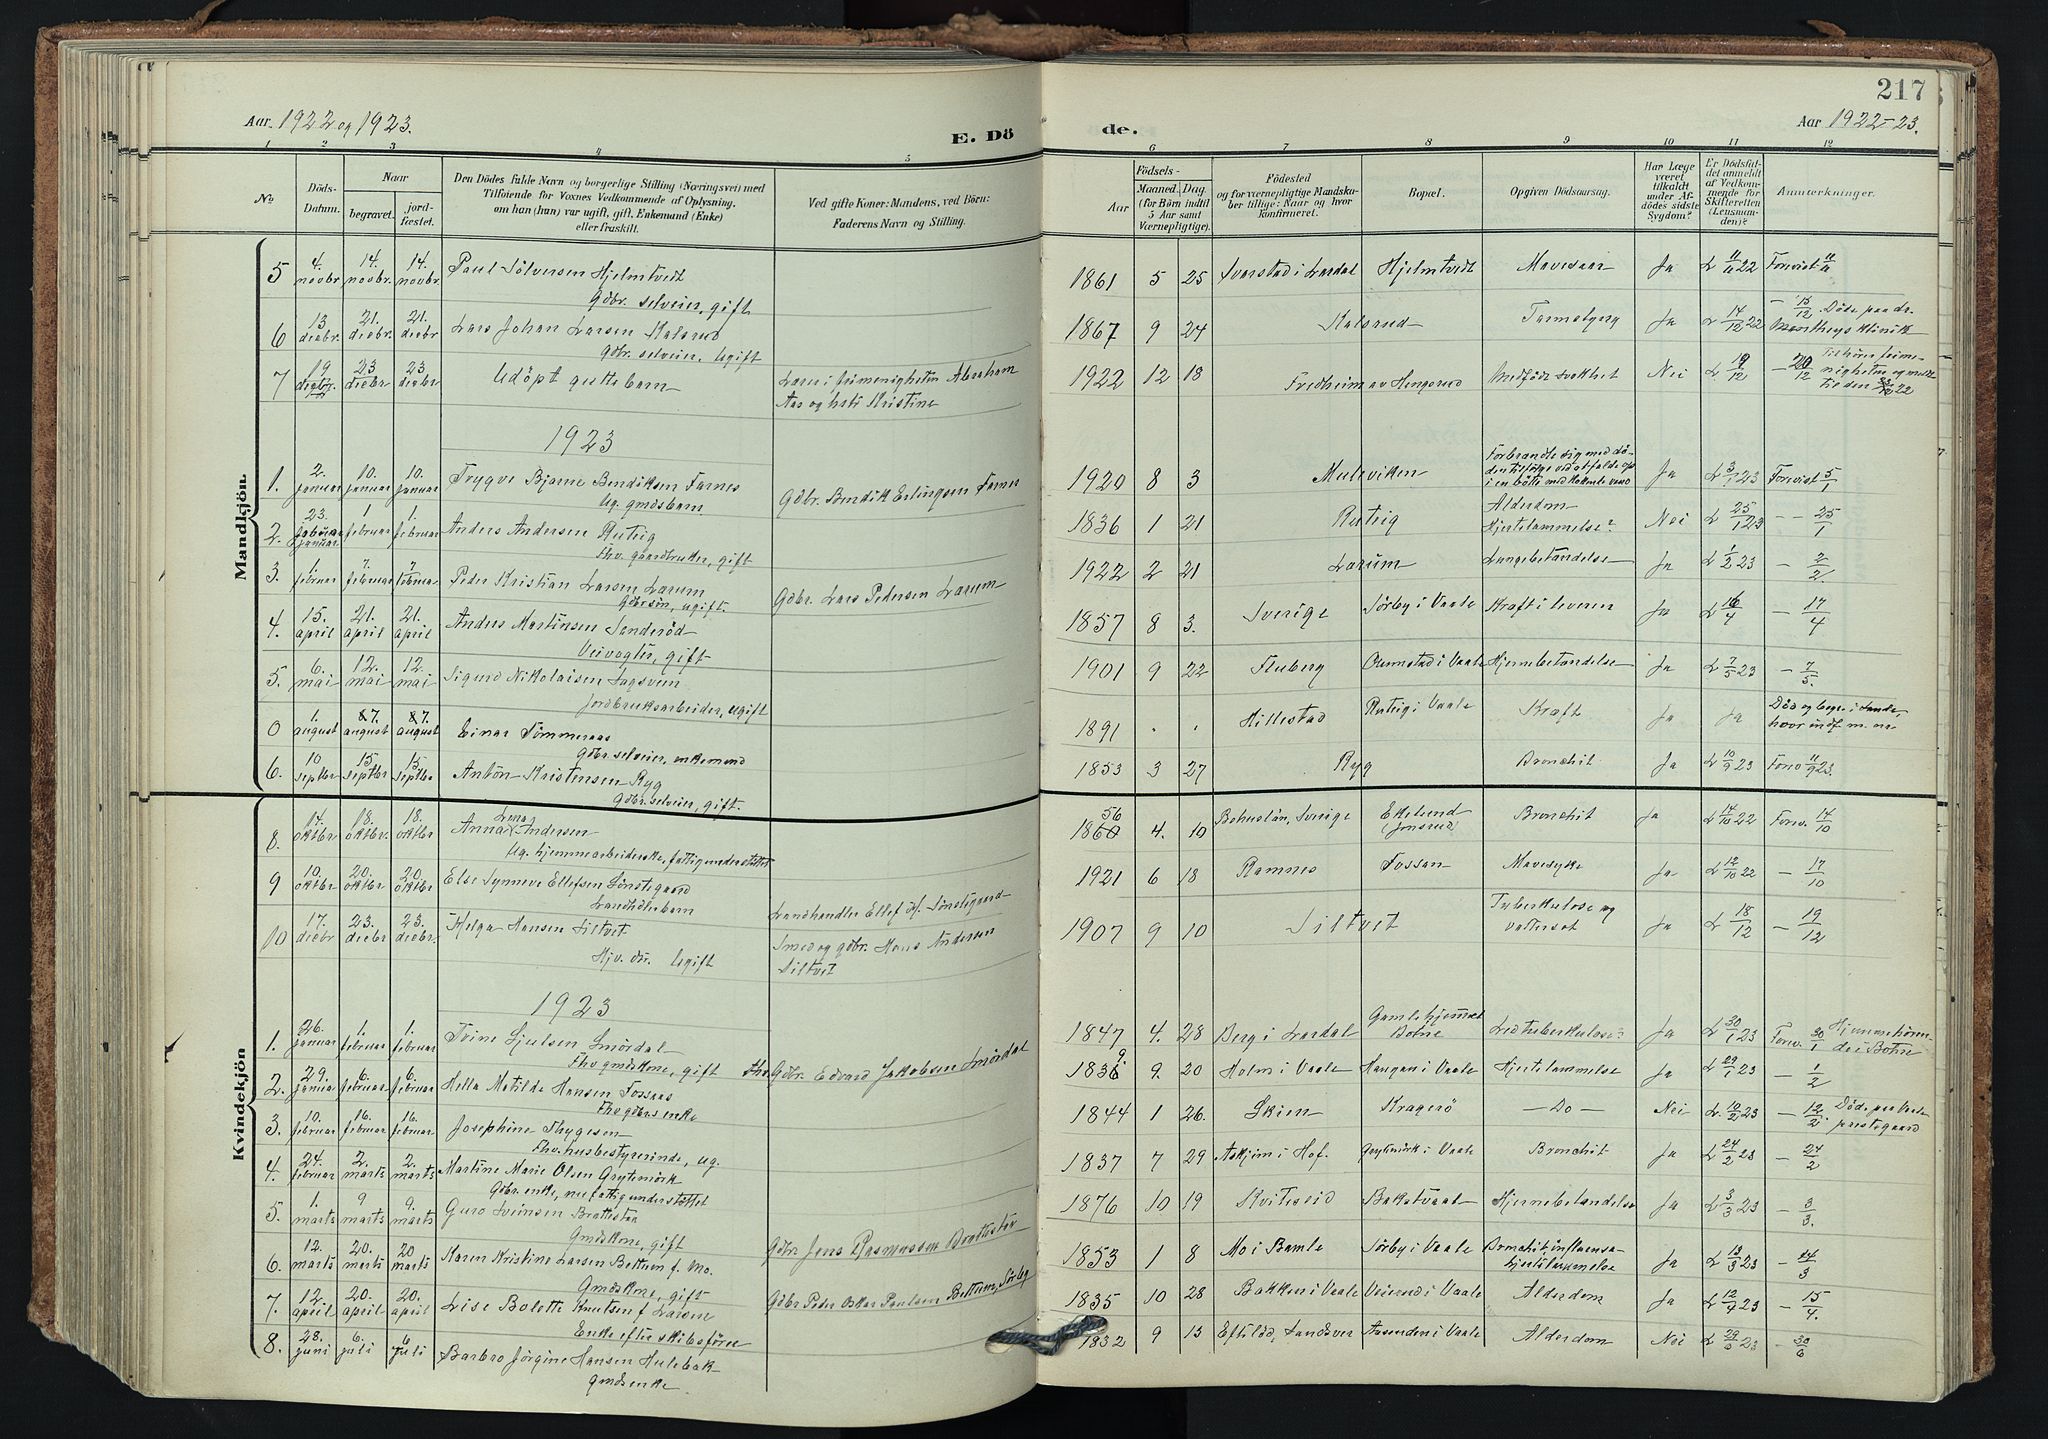 217
Aar 1922 og 1923.
E. Dö
de.
Aar 1922-23.
1 2 3 4 5 6 7 8 9 10 11 12
No
Döds-Datum.
Naar
begravet.
jord-fæstet.
Den Dödes fulde Navn og borgerlige Stilling (Næringsvei) med
Tilföiende for Voxnes Vedkommende af Oplysning,
om han (hun) var ugift, gift, Enkemand (Enke)
eller fraskilt.
Ved gifte Koner: Mandens, ved Börn:
Faderens Navn og Stilling.
Födsels-
Aar
Maaned. Dag.
(for Börn indtil
5 Aar samt
Værnepligtige).
Födested
og for værnepligtige Mandska-
ber tillige: Naar og hvor
konfirmeret.
Bopæl.
Opgiven Dödsaarsag.
Har Læge
været
tilkaldt
under Af-
dödes sidste
Sygdom?
Er Dödsfal-
det anmeldt
af Vedkom-
mende for
Skifteretten
(Lensman-
den)?
Anmærkninger.
Mandkjön.
5 4. novbr 14. novbr. 14. novbr. Paul Sölversen Hjelmtvedt 1861 5 25 Svarstad i Lardal Hjelmtvedt Mavesaar Ja L 11/11 22 Forevist 11/11
Gdbr. selveier, gift
6 13 decbr. 21. decbr. 21. decbr Lars Johan Larsen Kalsrud 1867 9 24 Kalsrud Ja L 14/12 22 - 15/12. Döde paa dr.
Gdbr. selveier. Ugift klinik
7 19 decbr. 23 decbr 23 decbr Udöpt guttebarn Abraham 1922 12 18 Fredheim av Hengsrud Medfödt svakhet Nei L 19/12 - 20/12
Aas og hstr Kristine
1923
1. 2. januar 10. januar 10. januar Trygve Bjarne Bendiksen Farnes Gdbr. Bendik Erlingsen Farnes 1920 8 3 Muleviken Forbrændte sig med dö- Ja L 3/1 23 Forevist 5/1
ug. gmdsbarn
2. 23. januar 1 februar 1. februar Anders Andersen Rutrig 1836 1 21 Rutrig Alderdom Nei L 25/1 23 - 25/1
Fhv. gaardbruker, gift Hjertelammelse?
3. 1. februar 7. februar 7 februar Peder Kristian Larsen Larum Gdbr. Lars Pedersen Larum 1922 2 21 Larum Lungebetændelse Ja L 1/2 23 - 2/2
Gdbrsön, ugift.
4. 15. april 21. april 21. april Anders Martinsen Sanderöd 1857 8 3. Sverige Sörby i Vaale Kræft i leveren Ja L 16/4 - 17/4
Veivogter, gift
5. 6. mai 12. mai 12. mai Sigurd Nikolaisen 1901 9 22 Fluberg i Vaale Hjernebetændelse Ja L 7/5 23 - 7/5.
Jordbruksarbeider, ugift
0 1. august 7. august 7. august Einar Tömmeraas 1891 Hillestad Rutrig i Vaale Kræft Ja Ja Död og begr. i Sande,
Gdbr. selveier, enkemand
6. 10 septbr 15. septbr 15. septbr Anton Kristensen Ryg 1853 3 27 Ryg Bronchit Ja L 10/9 23 Forev 11/9 23.
Gdbr. selveier, gift.
Kvindekjön
8. 14. oktbr 18. oktbr. 18. oktbr Anna Lena Andersen 1856 4. 10 Bohuslän, Sverige Ekelund (Jonsrud) Bronchit Ja L 14/10 22 Forev. 14/10
Ug. hjemmearbeiderske, fattigunderstöttet
9 10. oktbr 20. oktbr 20. oktbr Else Synneve Ellefsen Sönstegaard 1921 6 18 Ramnes Fossan Mavesyke Ja L 12/10 22 - 17/10
Landhandler Ellef H. Sönstegaard
10 17. decbr 23. decbr 23. decbr. Helga Hansen Siltvet Smed og gdbr. Hans Andersen 1907 9 10 Siltvet Tuberkulose og Ja L 18/12 - 19/12
Hjv. dtr. Ugift Siltvet vattersot
1923
1. 26. januar 1. februar 1. februar Trine Ljulsen Smördal Gdbr. Edvard Jakobsen Smördal 1847 4. 28 Berg i Lardal Gamlehjemmet Botne Ledtuberkulose? Ja L 30/1 23 Forev. 30/1 Hjemmehören-
Fhv gmdskone, gift de i Botne
2. 29. januar 6. februar 6. februar Hella Matilde Hansen Fossaas 183 9. 20 Holm i Vaale Haugan i Vaale Hjertelammelse Ja L 29/1 23 - 1/2
Fhv gdbrs enke
3. 10. februar 16. februar 16. februar Josephine Thygesen 1844 1 26. Skien Kragerö - Do - Nei L 10/2 23 - 12/2
Fhv. husbestyrerinde, ug.
4. 24. februar 2. marts 2. marts Martine Marie Olsen Grytemörk 1837 7 29 Askjem i Hof. Grytemörk i Vaale Bronchit Ja L 24/2 23 - 24/2
Gdbr. enke, nu fattigunderstöttet
5. 1. marts 9 marts 9. marts Guro Sveinsen Brattestö Gdbr. Jens Rasmussen Brattestö 1876 10 19 Kviteseid Hjernebetændelse Ja L 3/3 23 - 3/3.
Gmdskone, gift
6. 12. marts 20. marts 20 marts Karen Kristine Larsen Bettum f. Mo. Gdbr Peder Oskar Paulsen Bettum, Sörby 1853 1 8 Mo i Bamle Sörby i Vaale Bronchit, influensa- Ja L 13/3 23 - 14/3
Gmdskone, gift hjertelammelse
7. 12. april 20. april 20. april Lise Bolette Knutsen f. Larsen 1835 10 28 Bakken i Vaale i Vaale Alderdom Ja L 12/4 23 - 15/4.
Enke efter skibsförer
8. 28. juni 6. juli 6 juli Barbro Jörgine Hansen Hulebak 1832 9 13 Efteløt, Sandsver i Vaale Alderdom Nei L 29/6 23 - 30/6
Gmdsenke